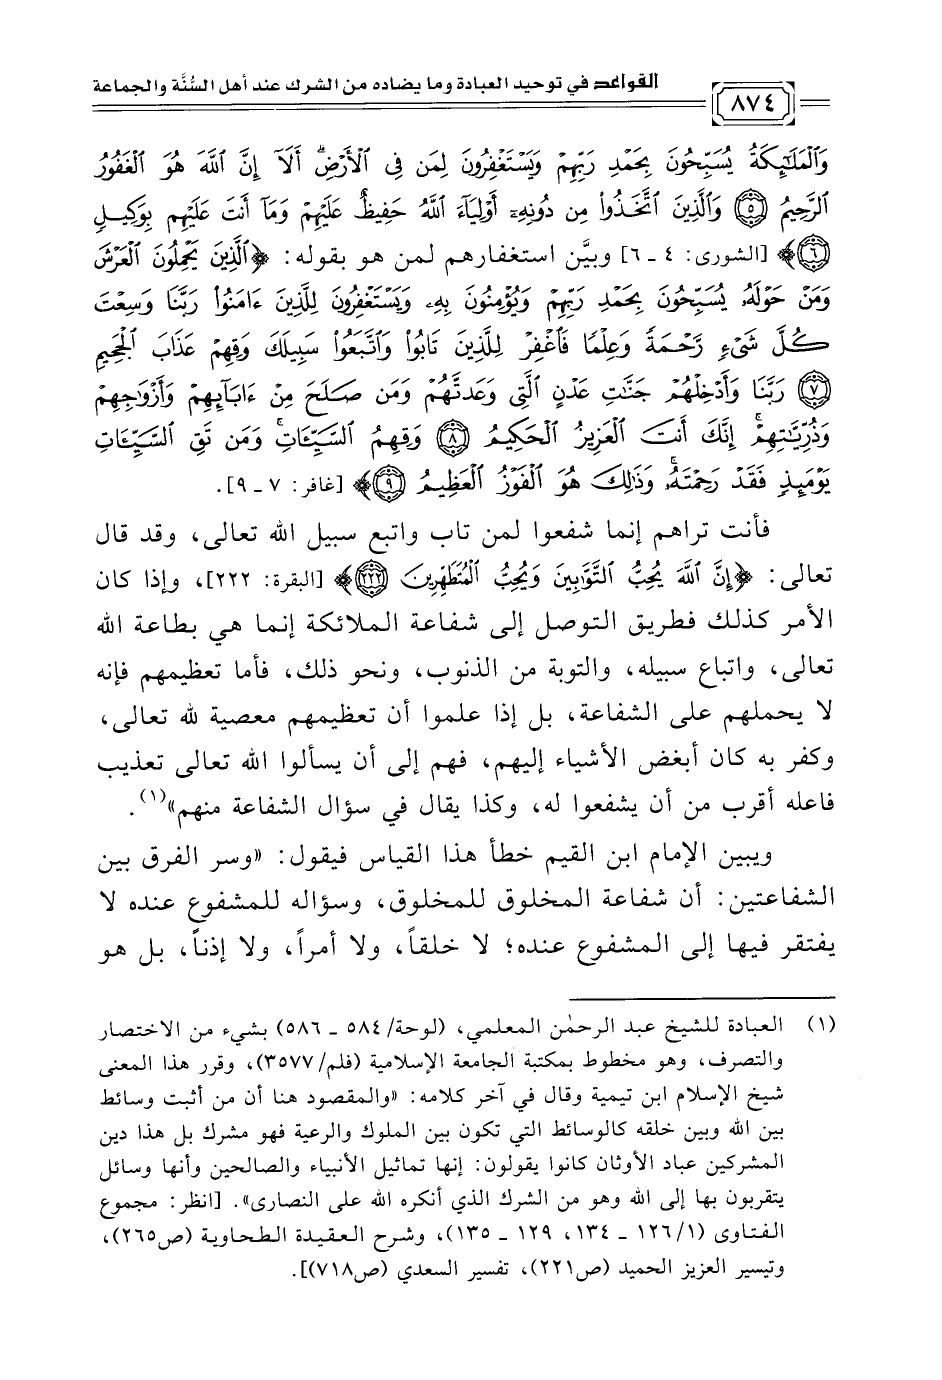 القواعد في توحيد العبادة وما يضاده من الشرك عند أهل السُّنَّة والجماعة
٨٧٤
وَٱلْمَلَٰٓئِكَةُ يُسَبِّحُونَ بِحَمْدِ رَبِّهِمْ وَيَسْتَغْفِرُونَ لِمَن فِى ٱلْأَرْضِ ۗ أَلَآ إِنَّ ٱللَّهَ هُوَ ٱلْغَفُورُ
ٱلرَّحِيمُ ﴿٥﴾ وَٱلَّذِينَ ٱتَّخَذُوا۟ مِن دُونِهِۦٓ أَوْلِيَآءَ ٱللَّهُ حَفِيظٌ عَلَيْهِمْ وَمَآ أَنتَ عَلَيْهِم بِوَكِيلٍ
﴿٦﴾﴾ [الشورى: ٤ ـ ٦] وبيَّن استغفارهم لمن هو بقوله: ﴿ٱلَّذِينَ يَحْمِلُونَ ٱلْعَرْشَ
وَمَنْ حَوْلَهُۥ يُسَبِّحُونَ بِحَمْدِ رَبِّهِمْ وَيُؤْمِنُونَ بِهِۦ وَيَسْتَغْفِرُونَ لِلَّذِينَ ءَامَنُوا۟ رَبَّنَا وَسِعْتَ
كُلَّ شَىْءٍ رَّحْمَةً وَعِلْمًا فَٱغْفِرْ لِلَّذِينَ تَابُوا۟ وَٱتَّبَعُوا۟ سَبِيلَكَ وَقِهِمْ عَذَابَ ٱلْجَحِيمِ
﴿٧﴾ رَبَّنَا وَأَدْخِلْهُمْ جَنَّٰتِ عَدْنٍ ٱلَّتِى وَعَدتَّهُمْ وَمَن صَلَحَ مِنْ ءَابَآئِهِمْ وَأَزْوَٰجِهِمْ
وَذُرِّيَّٰتِهِمْ ۚ إِنَّكَ أَنتَ ٱلْعَزِيزُ ٱلْحَكِيمُ ﴿٨﴾ وَقِهِمُ ٱلسَّيِّـَٔاتِ ۚ وَمَن تَقِ ٱلسَّيِّـَٔاتِ
يَوْمَئِذٍ فَقَدْ رَحِمْتَهُۥ ۚ وَذَٰلِكَ هُوَ ٱلْفَوْزُ ٱلْعَظِيمُ ﴿٩﴾﴾ [غافر: ٧ ـ ٩].
فأنت تراهم إنما شفعوا لمن تاب واتبع سبيل الله تعالى، وقد قال
تعالى: ﴿إِنَّ ٱللَّهَ يُحِبُّ ٱلتَّوَّٰبِينَ وَيُحِبُّ ٱلْمُتَطَهِّرِينَ ﴿٢٢٢﴾﴾ [البقرة: ٢٢٢]، وإذا كان
الأمر كذلك فطريق التوصل إلى شفاعة الملائكة إنما هي بطاعة الله
تعالى، واتباع سبيله، والتوبة من الذنوب، ونحو ذلك، فأما تعظيمهم فإنه
لا يحملهم على الشفاعة، بل إذا علموا أن تعظيمهم معصية لله تعالى،
وكفر به كان أبغض الأشياء إليهم، فهم إلى أن يسألوا الله تعالى تعذيب
فاعله أقرب من أن يشفعوا له، وكذا يقال في سؤال الشفاعة منهم»(١).
ويبين الإمام ابن القيم خطأ هذا القياس فيقول: «وسر الفرق بين
الشفاعتين: أن شفاعة المخلوق للمخلوق، وسؤاله للمشفوع عنده لا
يفتقر فيها إلى المشفوع عنده؛ لا خلقاً، ولا أمراً، ولا إذناً، بل هو
(١) العبادة للشيخ عبد الرحمٰن المعلمي، (لوحة/ ٥٨٤ ـ ٥٨٦) بشيء من الاختصار
والتصرف، وهو مخطوط بمكتبة الجامعة الإسلامية (فلم/ ٣٥٧٧)، وقرر هذا المعنى
شيخ الإسلام ابن تيمية وقال في آخر كلامه: «والمقصود هنا أن من أثبت وسائط
بين الله وبين خلقه كالوسائط التي تكون بين الملوك والرعية فهو مشرك بل هذا دين
المشركين عباد الأوثان كانوا يقولون: إنها تماثيل الأنبياء والصالحين وأنها وسائل
يتقربون بها إلى الله وهو من الشرك الذي أنكره الله على النصارى». [انظر: مجموع
الفتاوى (١/ ١٢٦ ـ ١٣٤، ١٢٩ ـ ١٣٥)، وشرح العقيدة الطحاوية (ص٢٦٥)،
وتيسير العزيز الحميد (ص٢٢١)، تفسير السعدي (ص٧١٨)].